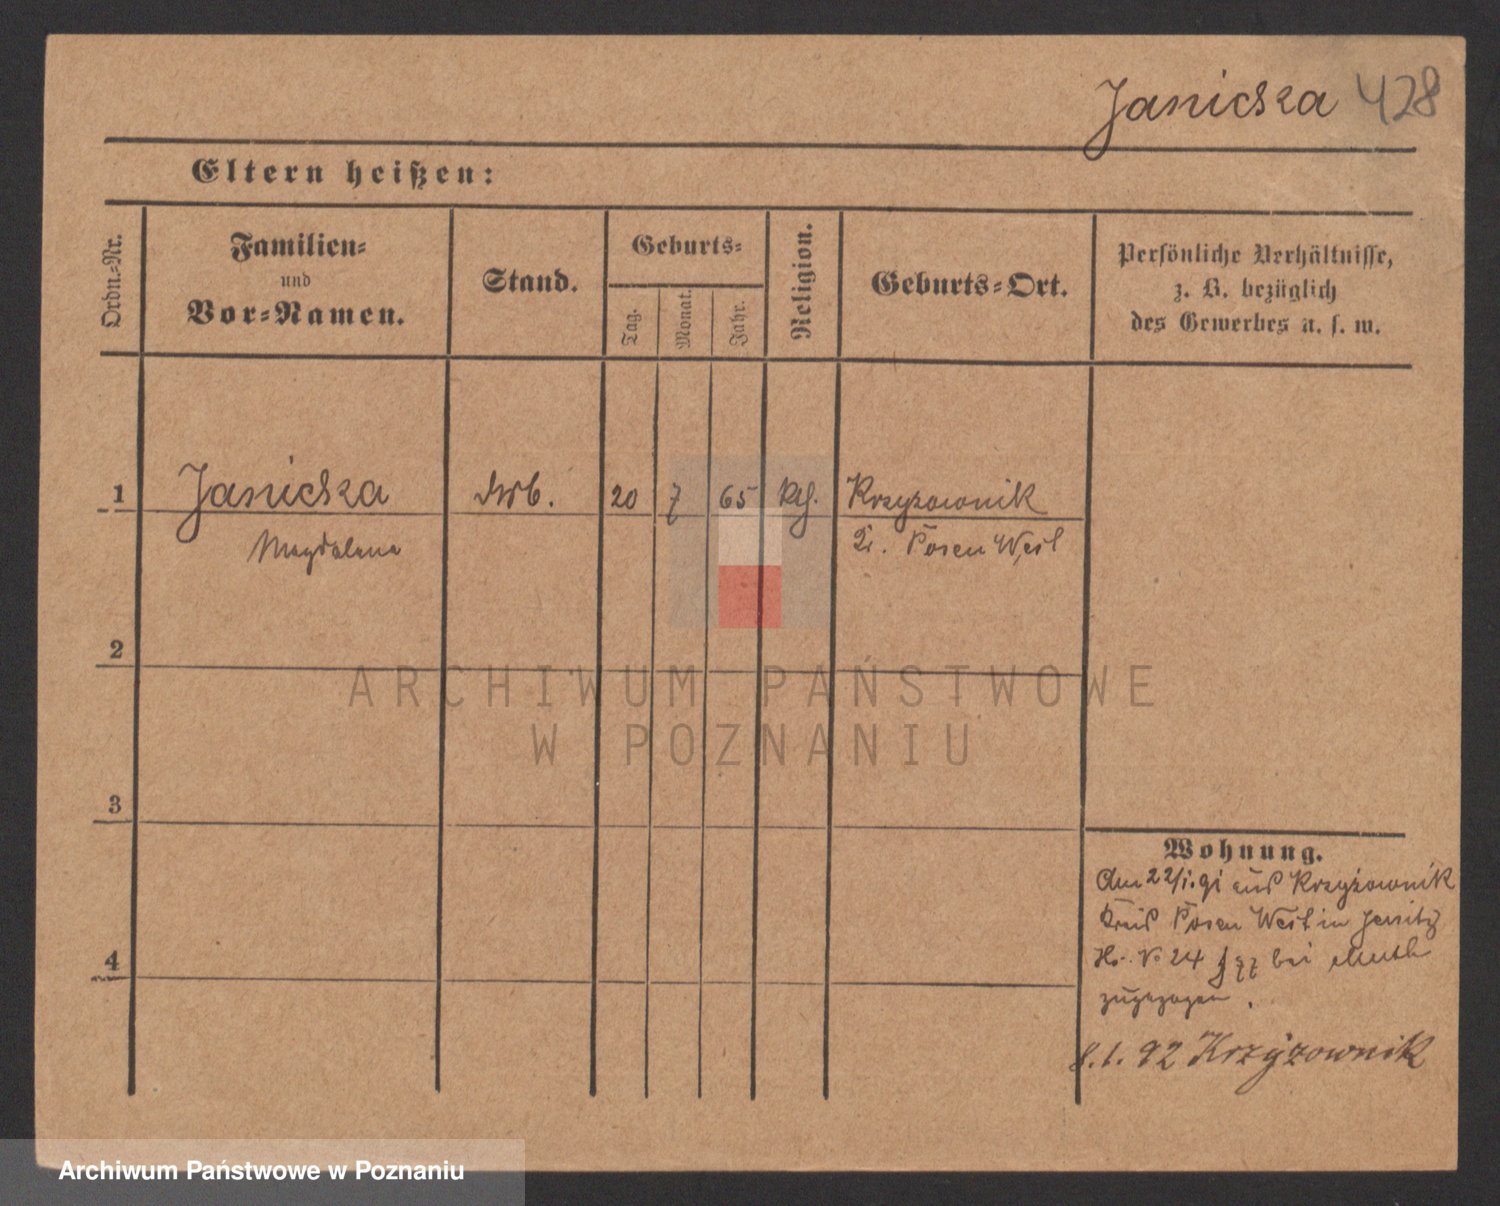 Janicka 428
Eltern heißen:
Ordn.-Nr.
Familien-
und
Vor-Namen.
Stand.
Geburts-
Tag.
Monat.
Jahr.
Religion.
Geburts-Ort.
Persönliche Verhältnisse,
z. B. bezüglich
des Gewerbes u. s. w.
1 Janicka 20 7 65 Krzyżownik
Magdalena Posen West
2
3
4
Wohnung.
Am 22/1.91 aus Krzyżownik
Kreis Posen West in Jersitz
No 24 bei
zugezogen.
8.1.92 Krzyżownik
ARCHIWUM PAŃSTWOWE
W POZNANIU
Archiwum Państwowe w Poznaniu